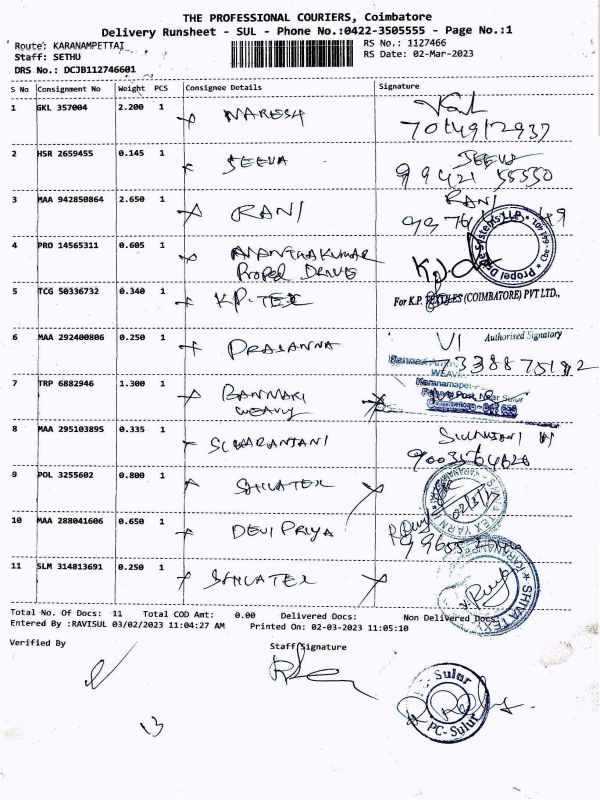 THE PROFESSIONAL COURIERS, Coimbatore
Delivery Runsheet - SUL - Phone No.:0422-3505555 - Page No.:1
Route: KARANAMPETTAI RS No.: 1127466
Staff: SETHU RS Date: 02-Mar-2023
DRS No.: DCJB112746601
S No Consignment No Weight PCS Consignee Details Signature
1 GKL 357004 2.200 1 NARESH
2 HSR 2659455 0.145 1 JEEVA JEEVA
99421 55550
3 MAA 942850864 2.650 1 RANI RANI
4 PRO 14565311 0.605 1 ANANTHAKUMAR
Propel Drive
5 TCG 50336732 0.340 1 K.P-TEX
For K.P. TEXTILES (COIMBATORE) PVT LTD.,
Authorised Signatory
6 MAA 292400806 0.250 1 PRASANNA
7 TRP 6882946 1.300 1 BANMARI
WEAVY
8 MAA 295103895 0.335 1
9 POL 3255602 0.800 1 SHIVATEX
10 MAA 288041606 0.650 1 DEVI PRIYA
11 SLM 314813691 0.250 1 SHIVATEX
Total No. Of Docs: 11 Total COD Amt: 0.00 Delivered Docs: Non Delivered Docs:
Entered By :RAVISUL 03/02/2023 11:04:27 AM Printed On: 02-03-2023 11:05:10
Verified By Staff Signature
PC- Sulur
PC-Sulur
13